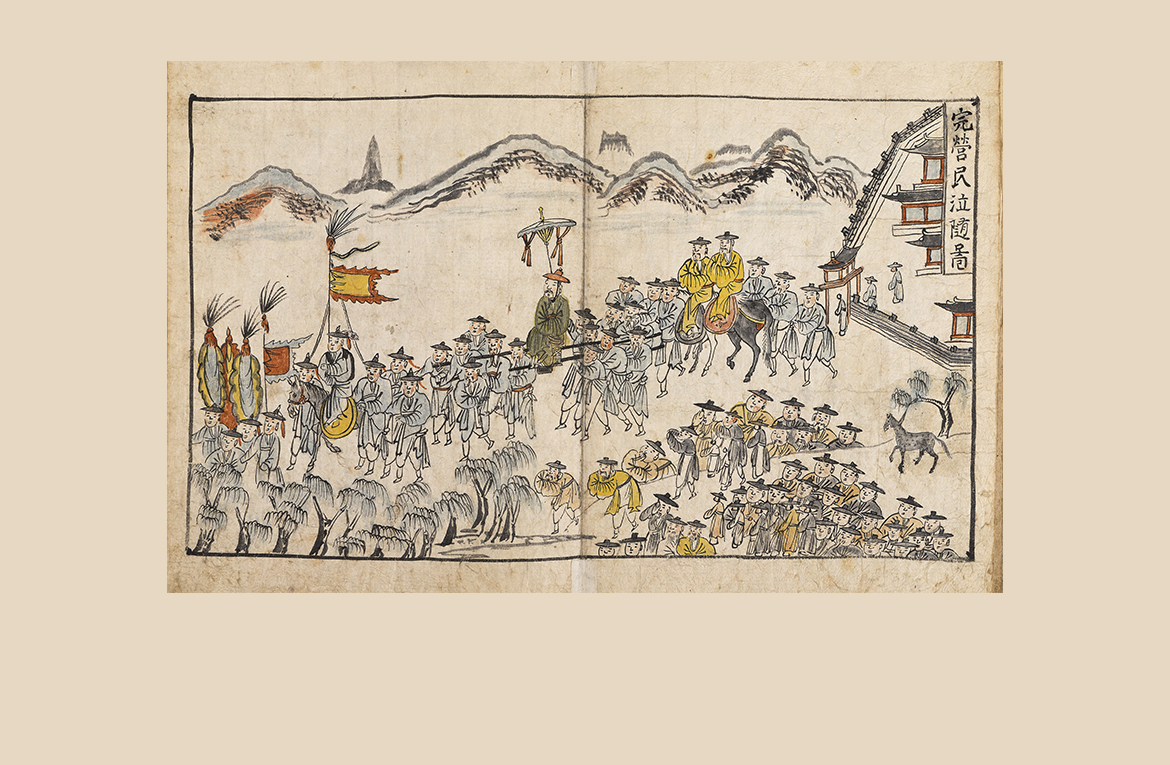 完營民泣隨圖